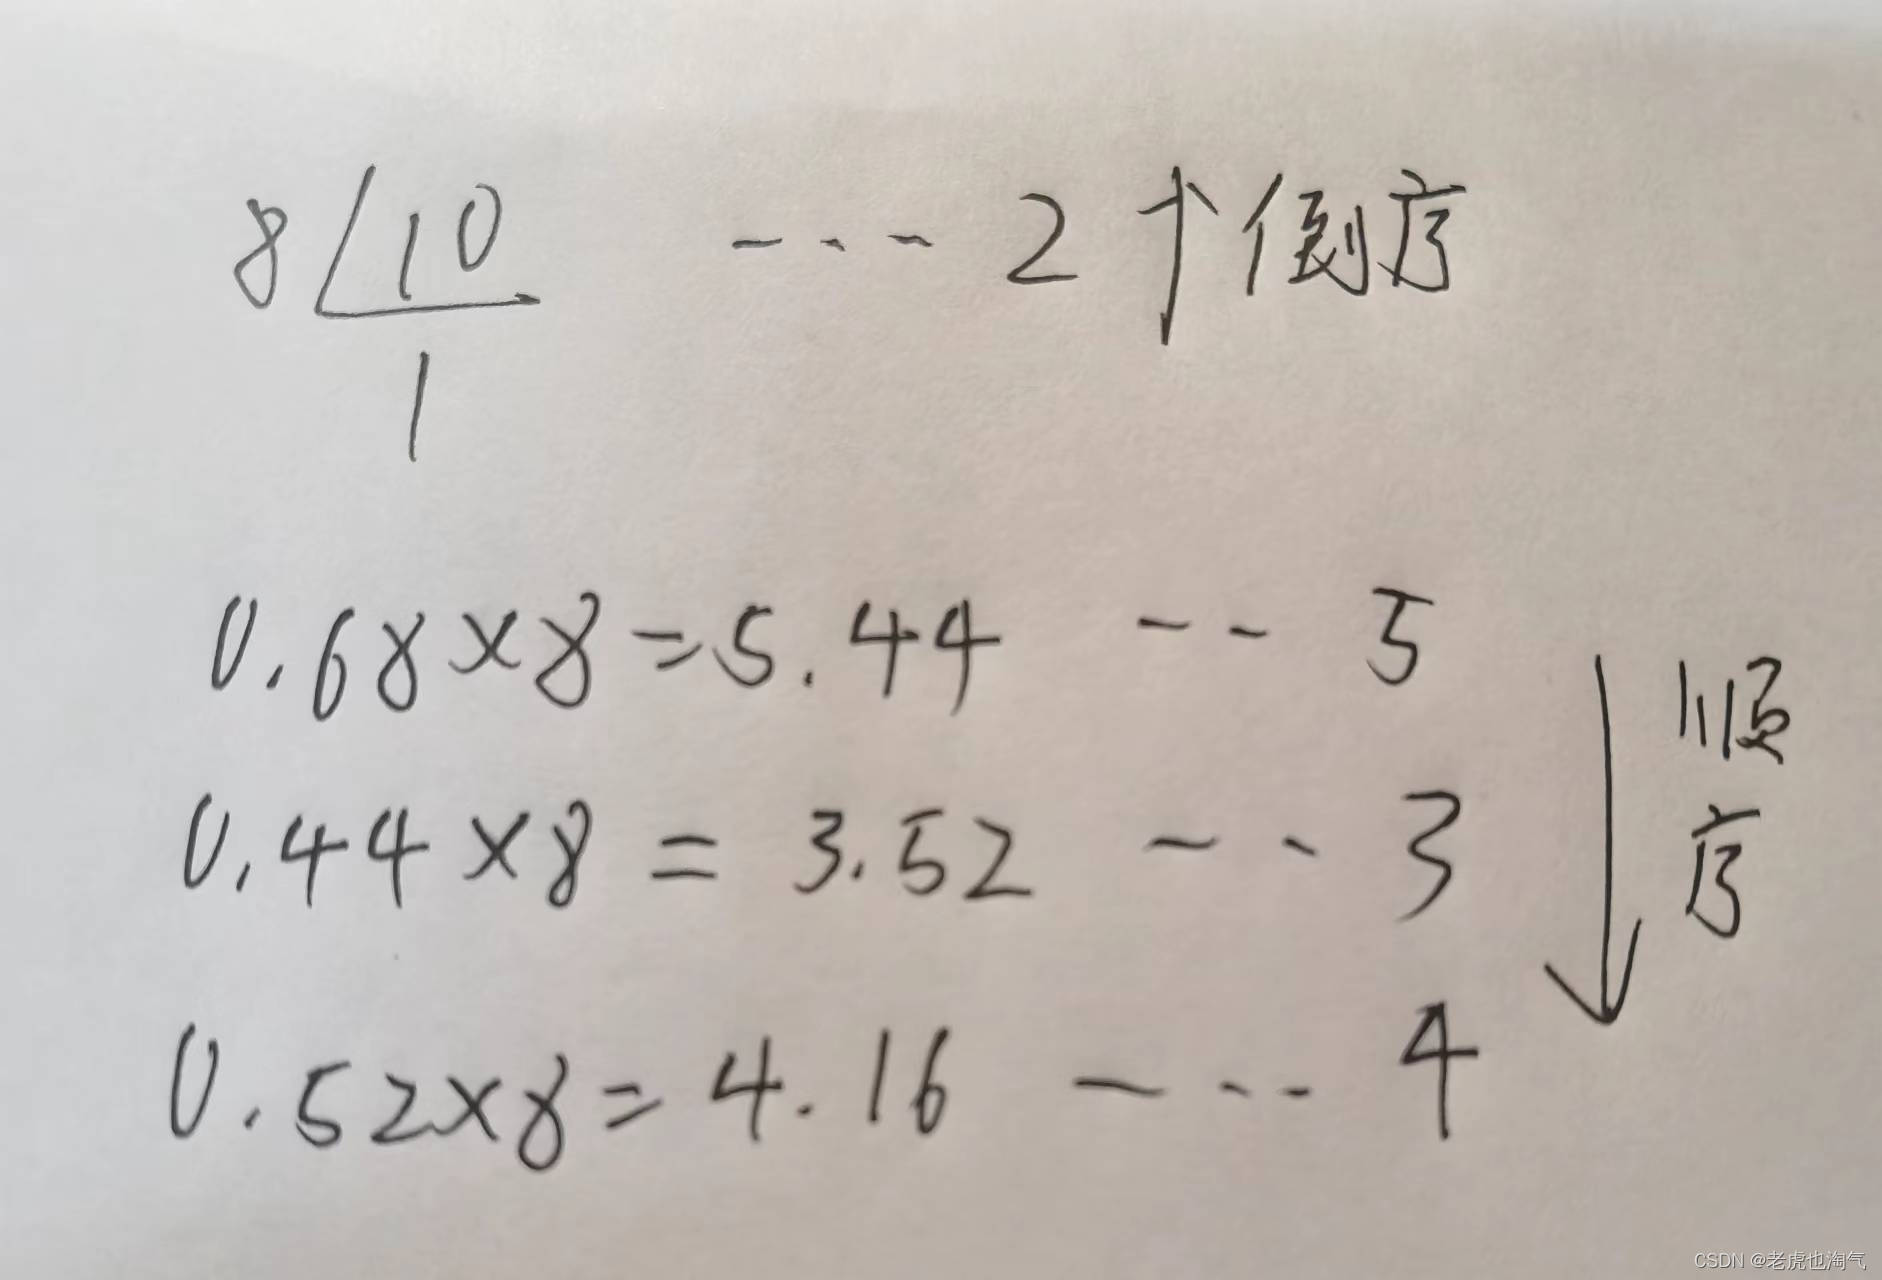 8 10 --- 2 倒序
1
0.68×8=5.44 -- 5
0.44×8=3.52 -- 3
0.52×8=4.16 --- 4
顺序
CSDN @老虎也淘气